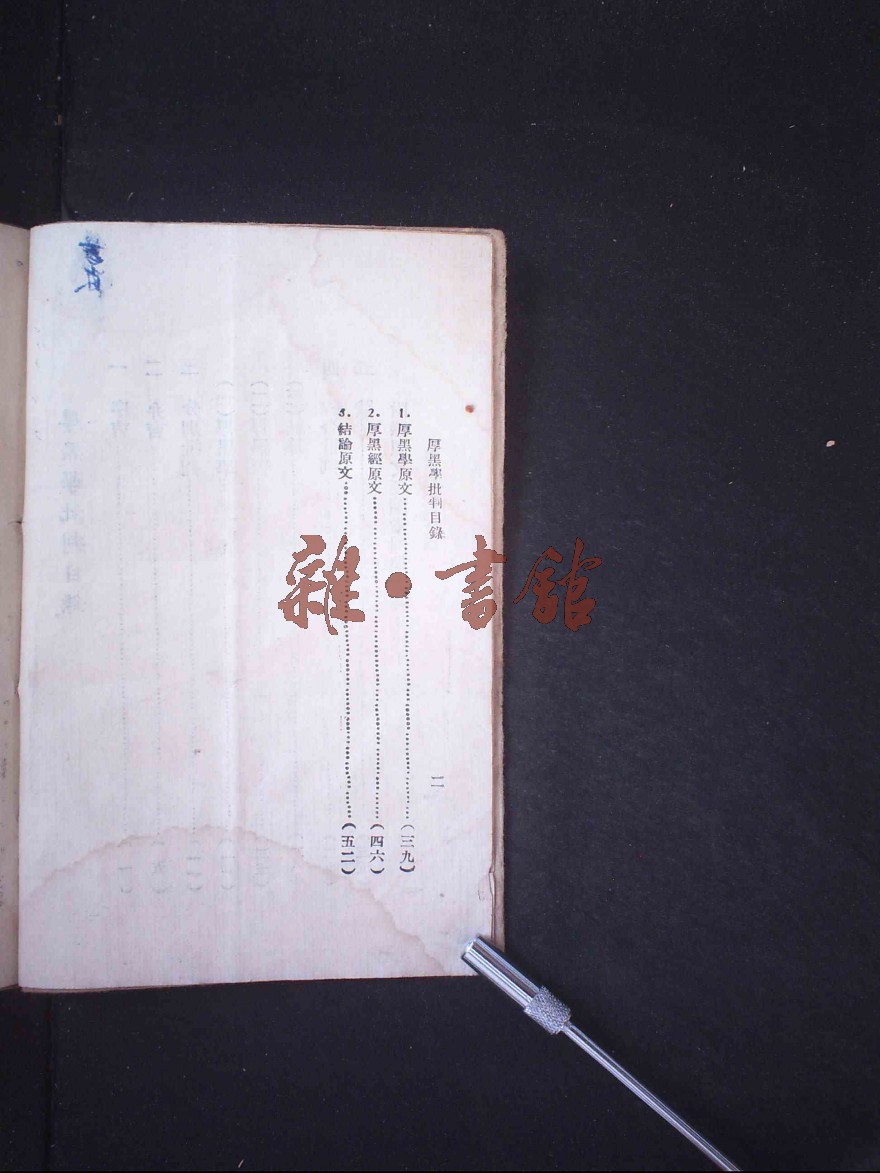 厚黑學批判目錄
二
1. 厚黑學原文……(三九)
2. 厚黑經原文……(四六)
3. 結論原文……(五二)
雜·書館